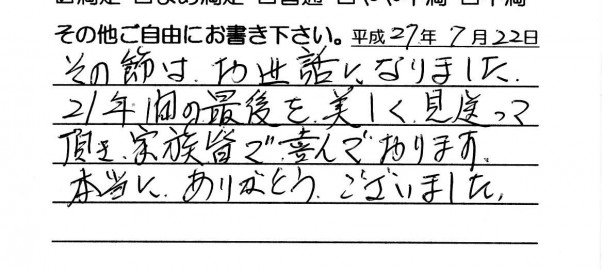 □満足 □まあ満足 □普通 □やや不満 □不満
その他ご自由にお書き下さい。平成27年7月22日
その節は、お世話になりました。
21年間の最後を、美しく、見送って
頂き、家族皆で、喜んでおります。
本当に、ありがとう、ございました。